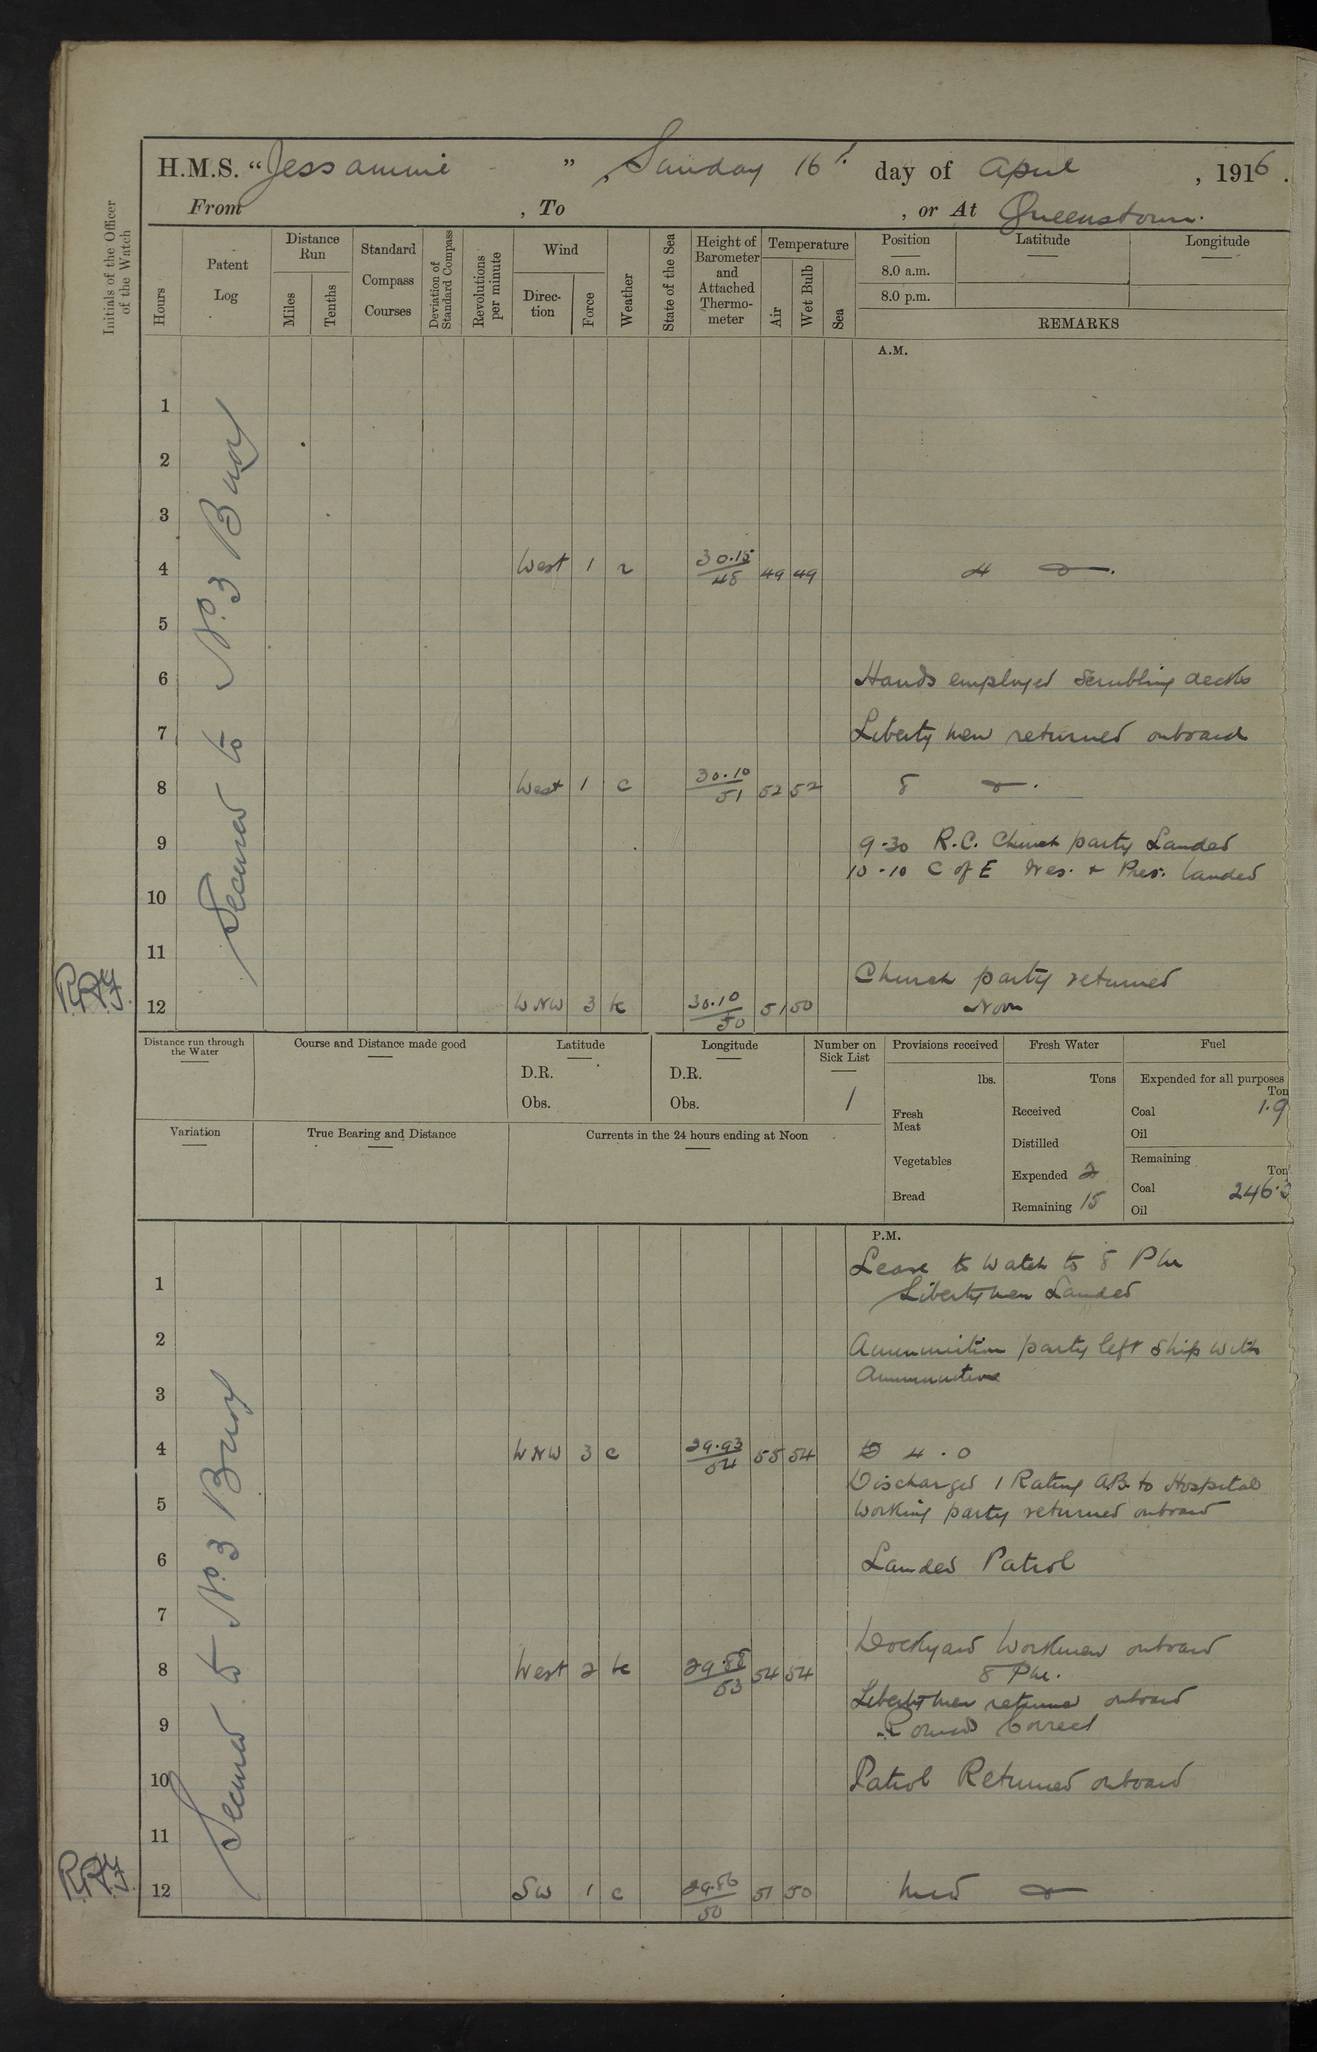 H.M.S. "Jessamine ", Sunday 16th day of April, 1916.
From , To , or At Queenstown.
Initials of the Officer of the Watch
Hours
Patent Log
Distance Run
Miles
Tenths
Standard Compass Courses
Deviation of Standard Compass
Revolutions per minute
Wind
Direc-tion
Force
Weather
State of the Sea
Height of Barometer and Attached Thermo-meter
Temperature
Air
Wet Bulb
Sea
Position
Latitude
Longitude
8.0 a.m.
8.0 p.m.
REMARKS
A.M.
Secured to No. 3 Buoy
1
2
3
4 West 1 r 30.15/48 49 49 4
5
6 Hands employed scrubbing decks
7 Liberty men returned onboard
8 West 1 c 30.10/51 52 52 8
9 9.30 R.C. Church party Landed
10.10 C of E Wes. + Pres. landed
10
11
Church party returned
R.R.J. 12 WNW 3 bc 30.10/50 51 50 Noon
Distance run through the Water
Course and Distance made good
Latitude
D.R.
Obs.
Longitude
D.R.
Obs.
Number on Sick List
1
Provisions received
lbs.
Fresh Meat
Vegetables
Bread
Fresh Water
Tons
Received
Distilled
Expended 2
Remaining 15
Fuel
Expended for all purposes
Ton
Coal 1.9
Oil
Remaining
Ton
Coal 246.3
Oil
Variation
True Bearing and Distance
Currents in the 24 hours ending at Noon
P.M.
Secured to No. 3 Buoy
Leave to Watch to 8 PM
1 Libertymen Landed
2 Ammunition party left ship with
Ammunition
3
4 WNW 3 c 29.93/54 55 54 4.0
Discharged 1 Rating A.B. to Hospital
5 Working party returned onboard
6 Landed Patrol
7
Dockyard Workmen onboard
8 West 2 bc 29.88/53 54 54 8 PM.
Libertymen returned onboard
9 Rounds Correct
10 Patrol Returned onboard
11
R.R.J. 12 SW 1 c 29.86/50 51 50 Mid